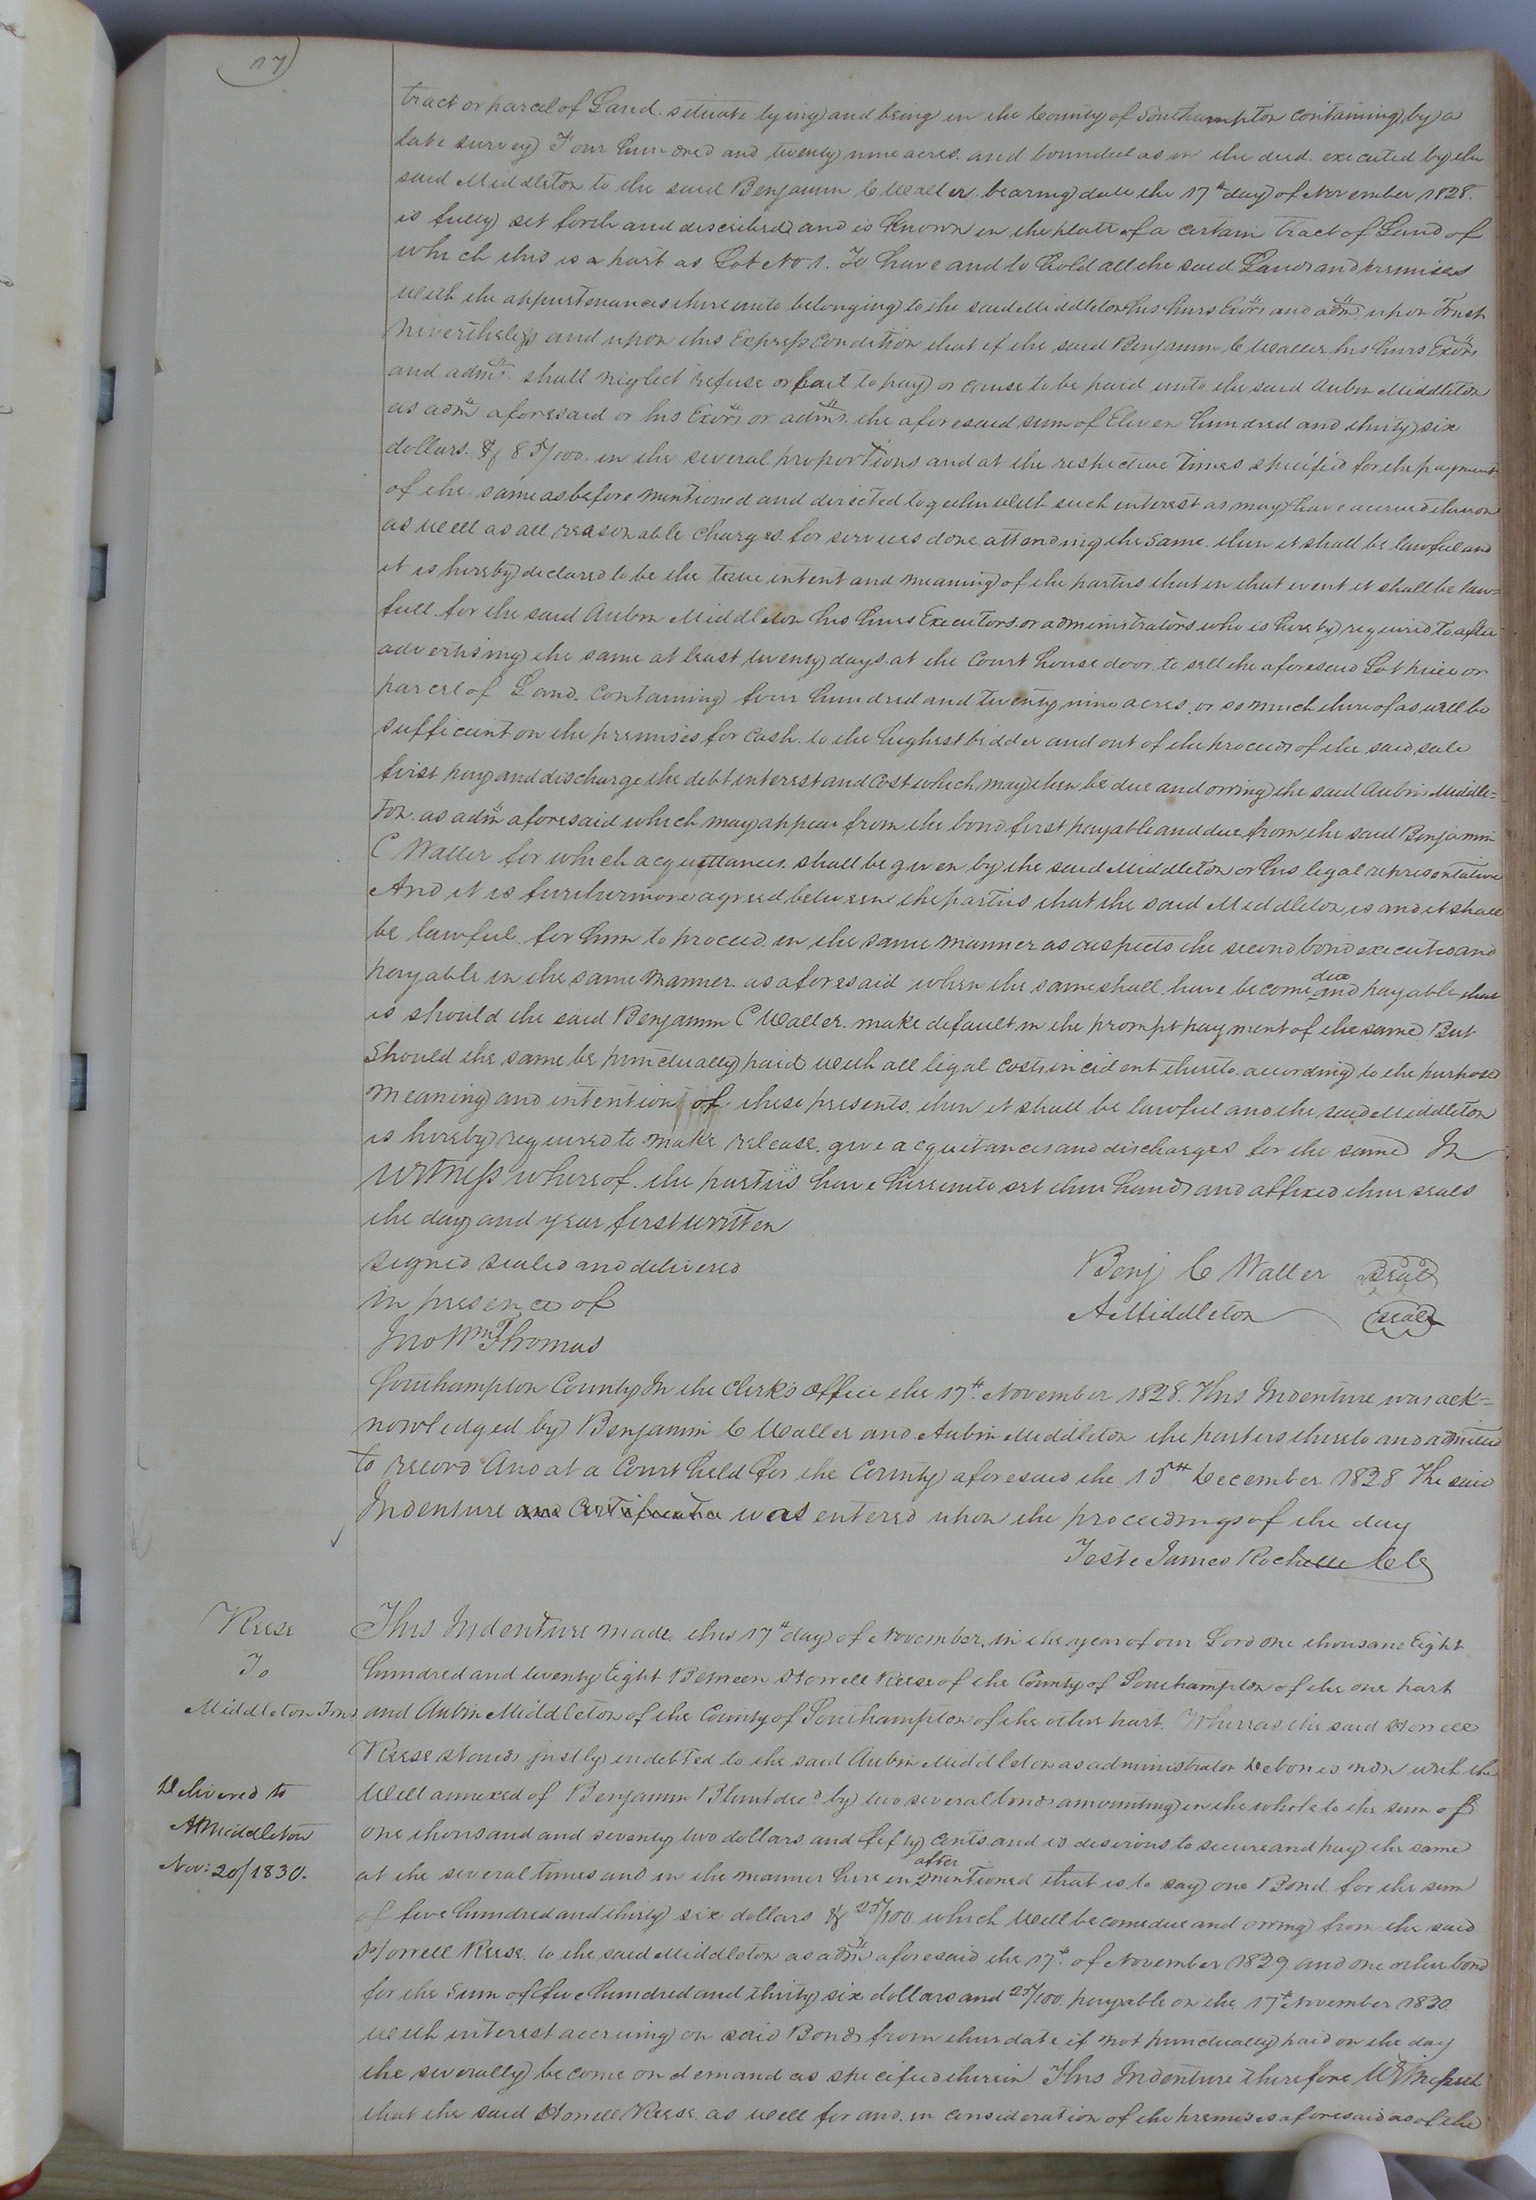 17
tract or parcel of Land situate lying and being in the County of Southampton containing by a
late survey Four hundred and twenty nine acres and bounded as in the deed executed by the
said Middleton to the said Benjamin C Waller bearing date the 17th day of November 1828.
is fully set forth and described and is known in the platt of a certain tract of Land of
which this is a part as Lot No 1. To have and to hold all the said Land and premises
with the appurtenances thereunto belonging to the said Middleton his heirs Exors and adms upon Trust
Nevertheless and upon this Express Condition that if the said Benjamin C Waller his heirs Exors
and adms shall neglect refuse or fail to pay or cause to be paid unto the said Aubin Middleton
as adm aforesaid or his Exors or adms the aforesaid sum of Eleven hundred and thirty six
dollars & 85/100 in the several proportions and at the respective Times specified for the payment
of the same as before mentioned and directed together with such interest as may have accrued thereon
as well as all reasonable charges for services done attending the same then it shall be lawful and
it is hereby declared to be the true intent and meaning of the parties that in that event it shall be law=
full for the said Aubin Middleton his heirs Executors or administrators who is hereby required to after
advertising the same at least twenty days at the Court house door to sell the aforesaid Lot piece or
parcel of Land containing four hundred and twenty nine acres or so much thereof as will be
sufficient on the premises for cash to the highest bidder and out of the proceeds of the said sale
first pay and discharge the debt interest and cost which may then be due and owing the said Aubin Middle=
ton as adm aforesaid which may appear from the bond first payable and due from the said Benjamin
C Waller for which acquittances shall be given by the said Middleton or his legal representative
And it is furthermore agreed between the parties that the said Middleton is and it shall
be lawful for him to proceed in the same manner as respects the second bond executed and
payable in the same manner as aforesaid when the same shall have become due and payable that
is should the said Benjamin C Waller make default in the prompt payment of the same But
should the same be punctually paid with all legal costs incident thereto according to the purpose
meaning and intention of these presents then it shall be lawful and the said Middleton
is hereby required to make release give acquitances and discharges for the same In
Witness whereof the parties have hereunto set their hands and affixed their seals
the day and year first written
signed sealed and delivered
in presence of
Jno Wm Thomas
Benj C Waller seal
A Middleton seal
Southampton County In the Clerk's Office the 17th November 1828. This Indenture was ack=
nowledged by Benjamin C Waller and Aubin Middleton the parties thereto and admitted
to record And at a Court held for the County aforesaid the 15th December 1828 The said
Indenture and Certificate was entered upon the proceedings of the day
Teste James Rochelle CC
Reese
To
Middleton
Delivered to
A Middleton
Nov: 20/1830.
This Indenture made this 17th day of November in the year of our Lord one thousand Eight
hundred and twenty Eight Between Storrell Reese of the County of Southampton of the one part
and Aubin Middleton of the County of Southampton of the other part. Whereas the said Storrell
Reese stands justly indebted to the said Aubin Middleton as administrator Debonis non with the
Will annexed of Benjamin Blunt decd by two several bonds amounting in the whole to the sum of
one thousand and seventy two dollars and fifty cents and is desirous to secure and pay the same
at the several times and in the manner herein after mentioned that is to say one Bond for the sum
of five hundred and thirty six dollars & 25/100 which will become due and owing from the said
Storrell Reese to the said Middleton as adm aforesaid the 17th of November 1829 and one other bond
for the sum of five hundred and thirty six dollars and 25/100 payable on the 17th November 1830
with interest accruing on said Bonds from this date if not punctually paid on the day
the severally become on demand as specified therein This Indenture therefore Witnesseth
that the said Storrell Reese as well for and in consideration of the premises aforesaid as of the